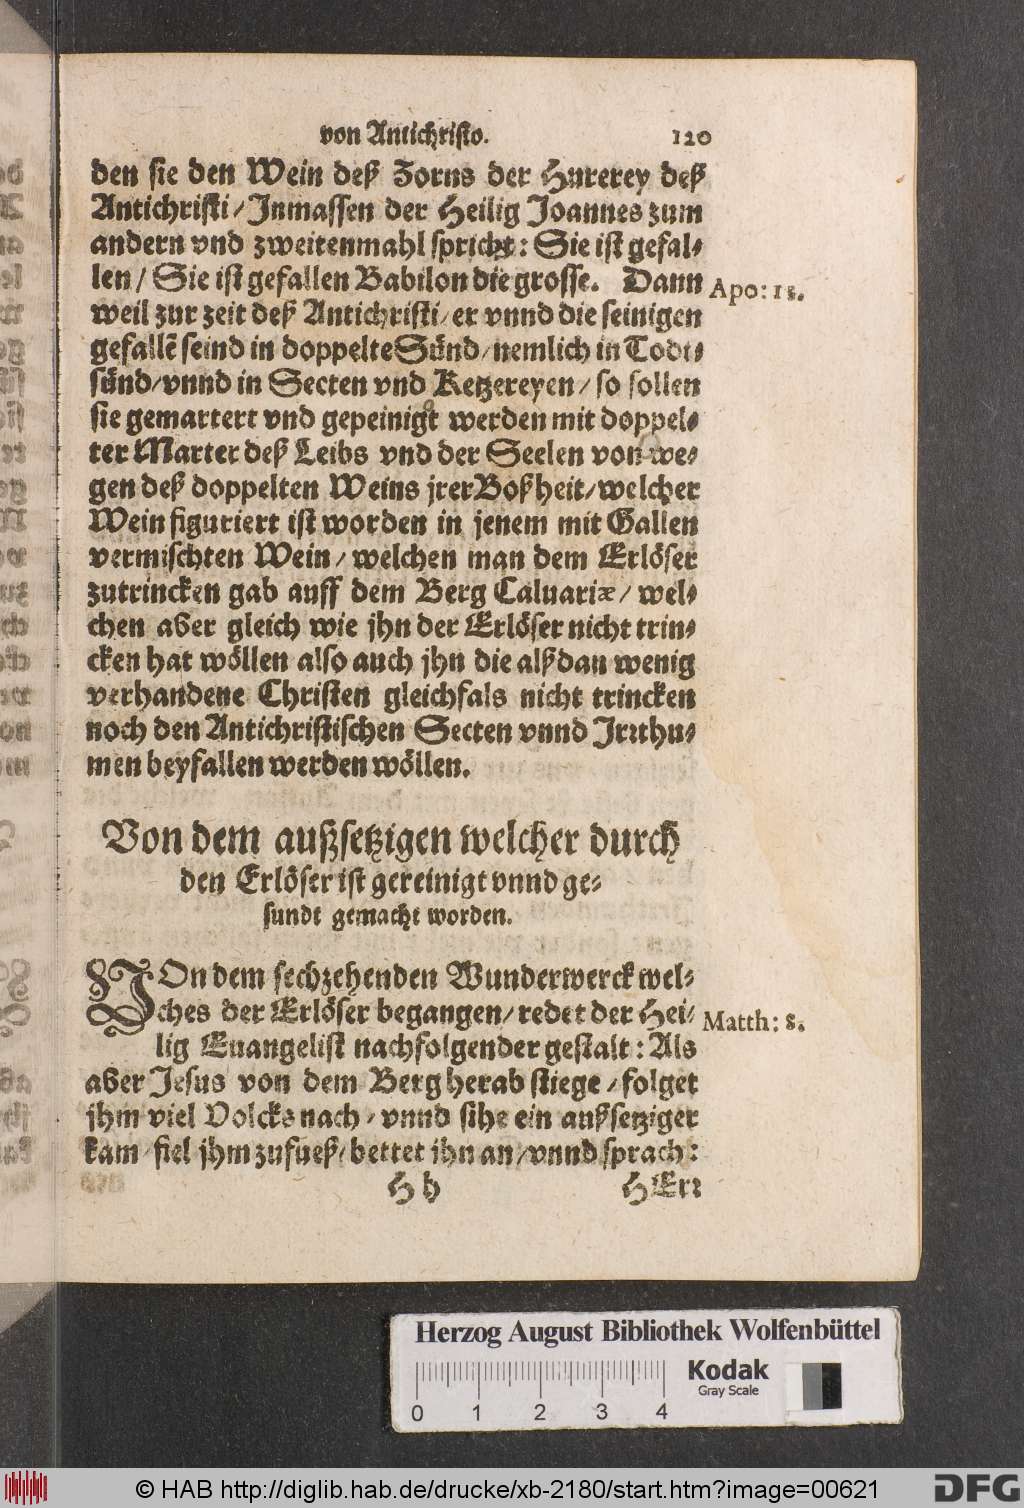 von Antichristo. 120
den sie den Wein deß Zorns der Hurerey deß
Antichristi / Inmassen der Heilig Joannes zum
andern vnd zweitenmahl spricht: Sie ist gefal⸗
len / Sie ist gefallen Babilon die grosse. Dann
Apo: 18.
weil zur zeit deß Antichristi / er vnnd die seinigen
gefallẽ seind in doppelte Sünd / nemlich in Todt⸗
sünd / vnnd in Secten vnd Ketzereyen / so sollen
sie gemartert vnd gepeinigt werden mit doppel⸗
ter Marter deß Leibs vnd der Seelen von we⸗
gen deß doppelten Weins jrer Boßheit / welcher
Wein figuriert ist worden in jenem mit Gallen
vermischten Wein / welchen man dem Erlöser
zutrincken gab auff dem Berg Caluariæ / wel⸗
chen aber gleich wie jhn der Erlöser nicht trin⸗
cken hat wöllen also auch jhn die alßdan wenig
verhandene Christen gleichfals nicht trincken
noch den Antichristischen Secten vnnd Irrthu⸗
men beyfallen werden wöllen.
Von dem außsetzigen welcher durch
den Erlöser ist gereinigt vnnd ge⸗
sundt gemacht worden.
VOn dem sechzehenden Wunderwerck wel⸗
ches der Erlöser begangen / redet der Hei⸗
Matth: 8.
lig Euangelist nachfolgender gestalt: Als
aber Jesus von dem Berg herab stiege / folget
jhm viel Volcks nach / vnnd sihe ein außsetziger
kam fiel jhm zufueß / bettet jhn an / vnnd sprach:
Hh HErr
Herzog August Bibliothek Wolfenbüttel
Kodak
Gray Scale
0 1 2 3 4
© HAB http://diglib.hab.de/drucke/xb-2180/start.htm?image=00621
DFG